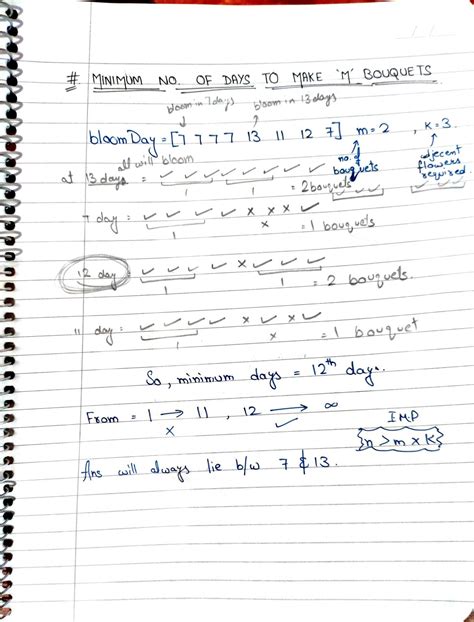 # MINIMUM NO. OF DAYS TO MAKE 'M' BOUQUETS
bloom in 7 days bloom in 13 days
bloomDay = [7 7 7 7 13 11 12 7] m = 2 , K = 3.
all will bloom no. of bouquets adjecent flowers required
at 13 days = ✓ ✓ ✓ ✓ ✓ ✓ ✓ ✓
1 1 = 2 bouquets ✓ ✓ ✓ ✓ ✓ ✓
7 day = ✓ ✓ ✓ ✓ x x x ✓
1 x = 1 bouquets
12 day ✓ ✓ ✓ ✓ x ✓ ✓ ✓
1 1 = 2 bouquets.
11 day = ✓ ✓ ✓ ✓ x ✓ x ✓
1 x = 1 bouquet
So, minimum days = 12th day.
From = 1 → 11 , 12 → ∞
x ✓
IMP
{n > m x K}
Ans will always lie b/w 7 & 13.